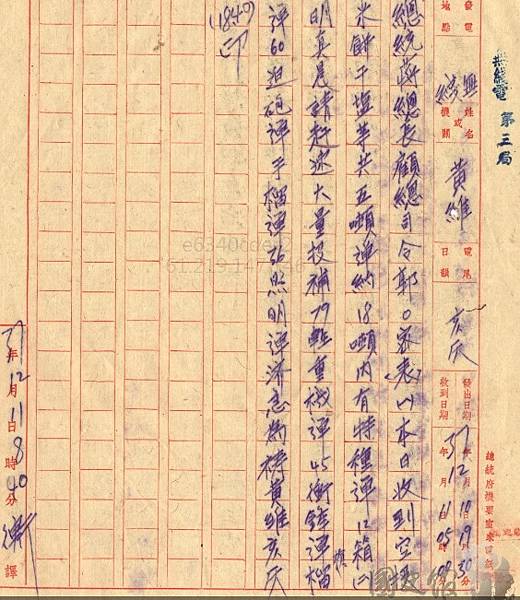 無線電 第三局
總統府機要室來電
發電地點 雙堆
姓名或機關 黃維
電尾日韻 亥灰
發出日期 37年12月10日19時30分
收到日期 年 月11日05時00分
總統蔣總長顧總司令郭0密表(一)本日收到空投
米餅干鹽等共五噸彈約18噸內有特種彈12箱(二)
明真晨請趕速大量投補79輕重機彈45衝鋒彈榴
彈60迫砲彈手榴彈36照明彈濟急為禱黃維亥灰
(1840)印
37年12月11日8時40分 譯
國史館